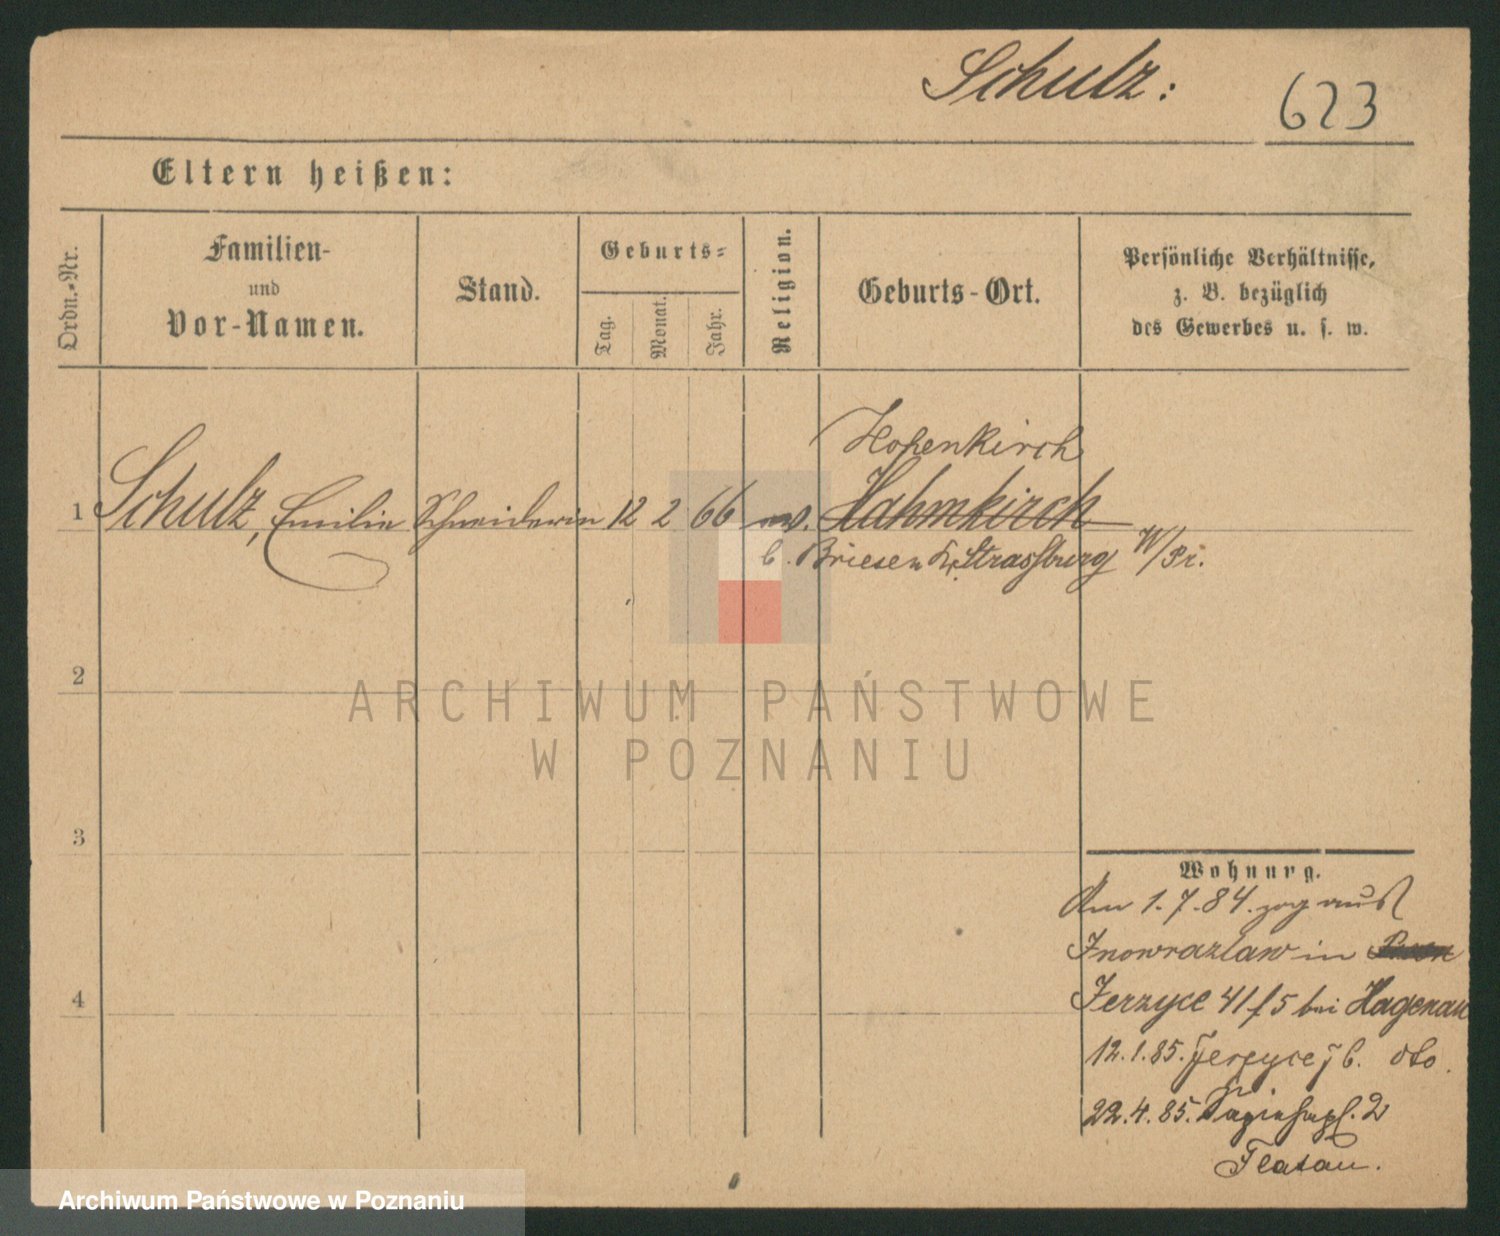 Schulz:
623
Eltern heißen:
Ordn.-Nr.
Familien-
und
Vor-Namen.
Stand.
Geburts-
Tag.
Monat.
Jahr.
Religion.
Geburts-Ort.
Persönliche Verhältnisse,
z. B. bezüglich
des Gewerbes u. s. w.
Hohenkirch
1 Schulz, Emilie Schneiderin 12 2 66 ev. Hahmkirch
b. Briesen Kr. Strassburg W/Pr.
2
ARCHIWUM PAŃSTWOWE
W POZNANIU
3
4
Wohnung.
Am 1.7.84. zog aus
Inowrazlaw in
Jerzyce 41 f 5 bei Hagenau
12.1.85. Jerzyce b. dto.
22.4.85. 2
Flatau.
Archiwum Państwowe w Poznaniu